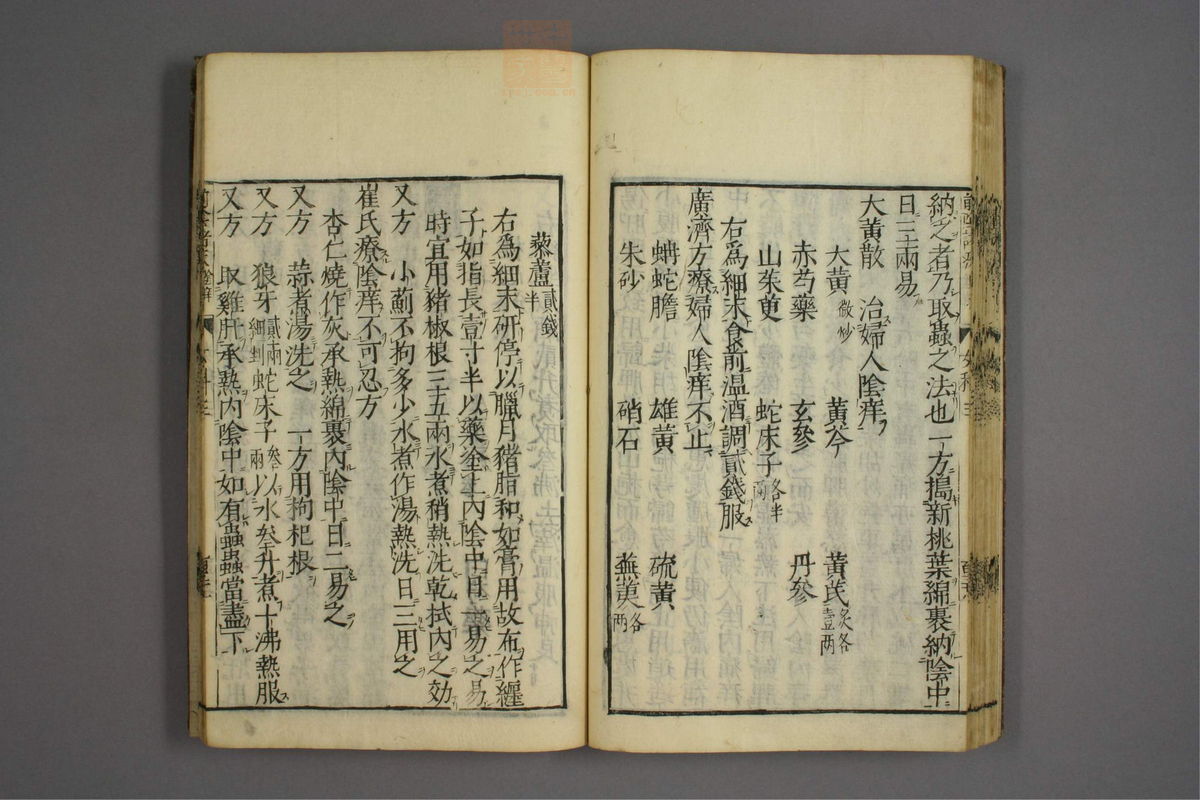 納之者乃取蟲之法也一方搗新桃葉綿裹納陰中
日三兩易
大黃散　治婦人陰痒
大黃微炒　黃芩　黃芪炙各壹兩
赤芍藥　玄參　丹參
山茱萸　蛇床子各半兩
右為細末食前温酒調貳錢服
廣濟方療婦人陰痒不止
蚺蛇膽　雄黃　硫黃
朱砂　硝石　蕪荑各兩
藜蘆貳錢半
右為細末研停以臘月猪脂和如膏用故布作纏
子如指長壹寸半以藥塗上內陰中日一易之易
時宜用猪椒根三五兩水煮稍熱洗乾拭內之効
又方　小薊不拘多少水煮作湯熱洗日三用之
崔氏療陰痒不可忍方
杏仁燒作灰承熱綿裹內陰中日二易之
又方　蒜煮湯洗之　一方用枸杞根
又方　狼牙貳兩細剉蛇床子叄兩以水叄升煮十沸熱服
又方　取雞肝承熱內陰中如有蟲蟲當盡下